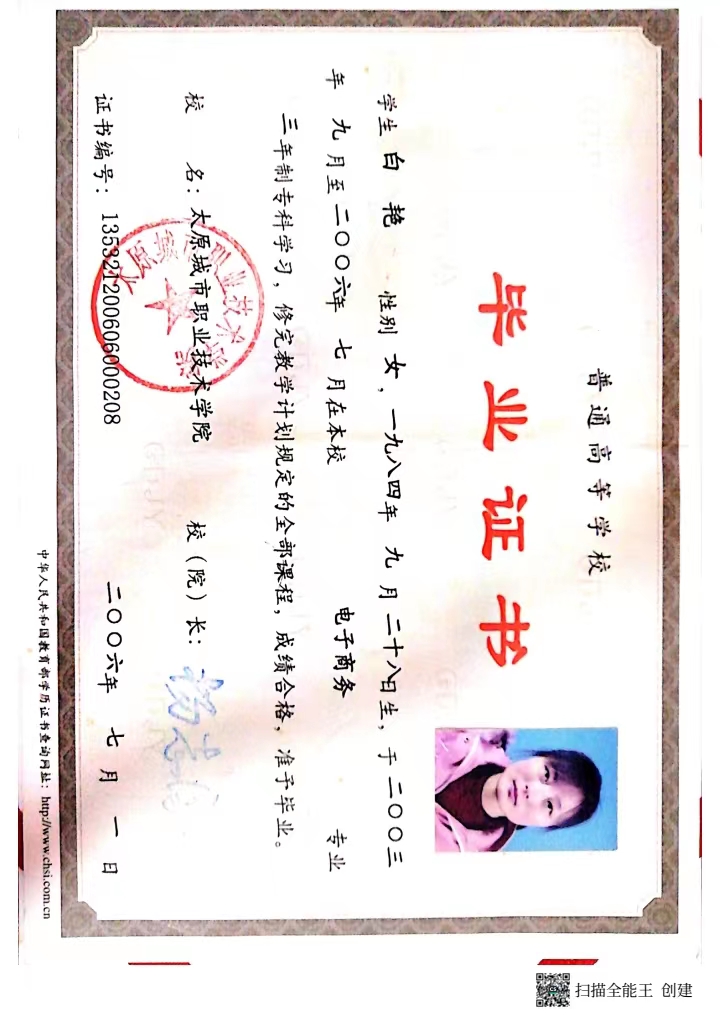 普通高等学校
毕业证书
学生 白艳 性别 女，一九八四年 九 月 二十八日生，于 二〇〇三
年 九 月至 二〇〇六年 七 月在本校 电子商务 专业
三年制专科学习，修完教学计划规定的全部课程，成绩合格，准予毕业。
校 名：太原城市职业技术学院 校（院）长：
太原城市职业技术学院
证书编号：135321200606000208 二〇〇六年 七 月 一 日
中华人民共和国教育部学历证书查询网址：http://www.chsi.com.cn
扫描全能王 创建